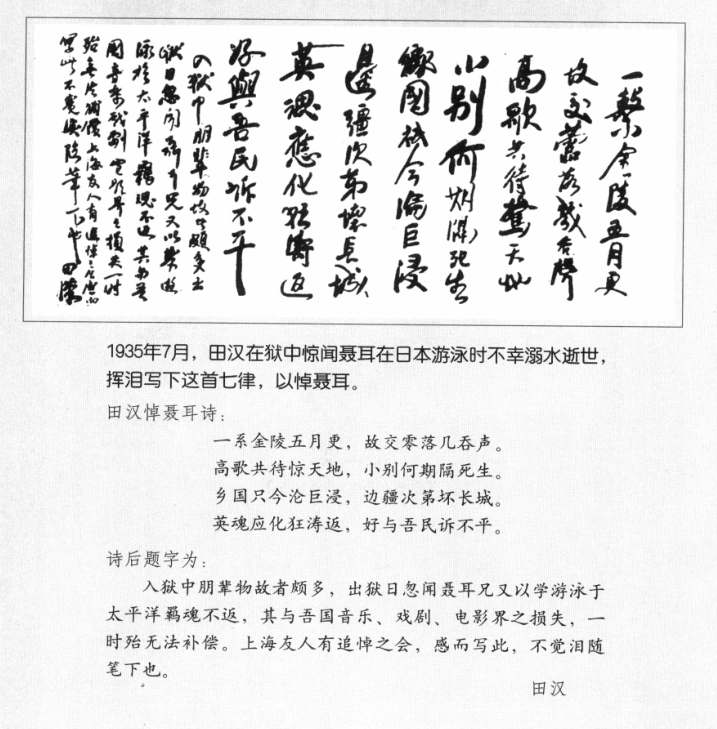 一繫金陵五月更
故交蕭落幾吞聲
高歌共待驚天地
小別何期隔死生
鄉國祇今淪巨浸
邊疆次第壞長城
英魂應化狂濤返
好與吾民訴不平
入獄中朋輩物故者頗多出
獄日忽聞聶耳兄又以學游
泳於太平洋羈魂不返其與吾
國音樂戲劇電影界之損失一時
殆無法補償上海友人有追悼之會感而
寫此不覺淚隨筆下也 田漢
1935年7月，田汉在狱中惊闻聂耳在日本游泳时不幸溺水逝世，
挥泪写下这首七律，以悼聂耳。
田汉悼聂耳诗：
一系金陵五月更，故交零落几吞声。
高歌共待惊天地，小别何期隔死生。
乡国只今沦巨浸，边疆次第坏长城。
英魂应化狂涛返，好与吾民诉不平。
诗后题字为：
入狱中朋辈物故者颇多，出狱日忽闻聂耳兄又以学游泳于
太平洋羁魂不返，其与吾国音乐、戏剧、电影界之损失，一
时殆无法补偿。上海友人有追悼之会，感而写此，不觉泪随
笔下也。
田汉